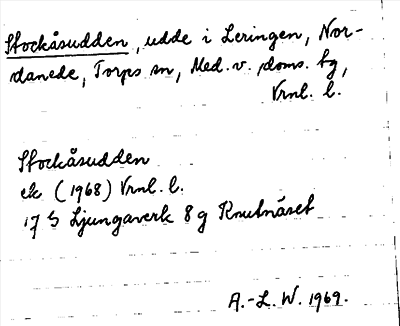 Stockåsudden, udde i Leringen, Nor-
danede, Torps sn, Med. v. doms. tg,
Vrnl. l.
Stockåsudden
ek (1968) Vrnl. l.
17 G Ljungaverk 8 g Knutnäset
A.-L. W. 1969.